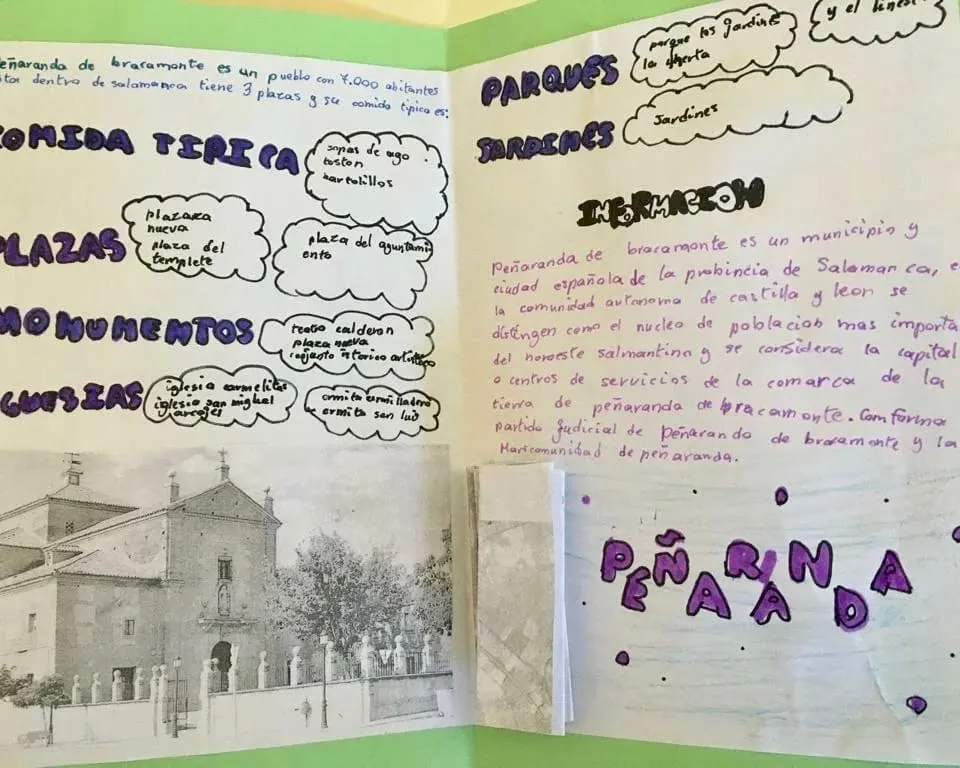 eñaranda de bracamonte es un pueblo con 7.000 abitantes
sta dentro de salamanca tiene 3 plazas y su comida tipica es:
COMIDA TIPICA
sopas de ago
toston
bartolillos
PLAZAS
plazaza
nueva
plaza del
templete
plaza del aguntami
ento
MONUMENTOS
teatro calderon
plaza nueva
conjunto istorico artistico
GUESIAS
iglesia carmelitas
iglesia san miguel
arcajel
ermita san luis
PARQUES
parque los jardines
la huerta
y el
JARDINES
Jardines
INFORMACION
Peñaranda de bracamonte es un municipio y
ciudad española de la probincia de Salamanca, e
la comunidad autonoma de castilla y leon se
distingen como el nucleo de poblacion mas importa
del noroeste salmantina y se considera la capital
o centros de servicios de la comarca de la
tierra de peñaranda de bracamonte. Com forma
partido judicial de peñaranda de bracamonte y la
Maricomunidad de peñaranda.
PEÑARANDA